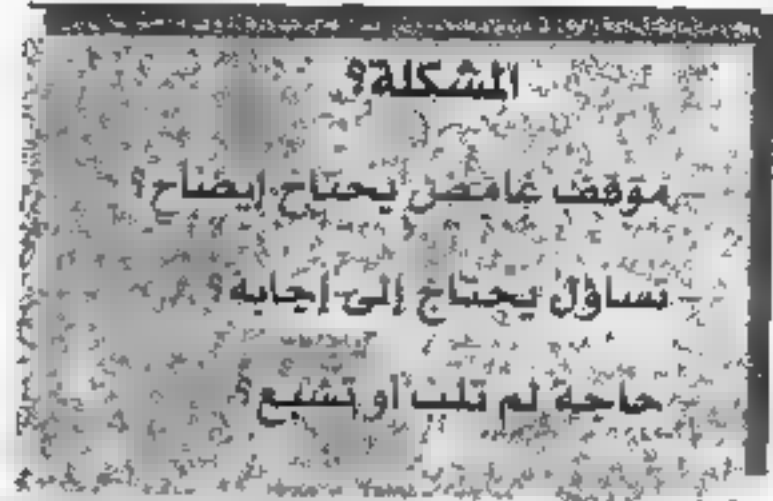 المشكلة؟
- موقف غامض يحتاج إيضاح؟
- تساؤل يحتاج إلى إجابة؟
- حاجة لم تلب أو تشبع؟